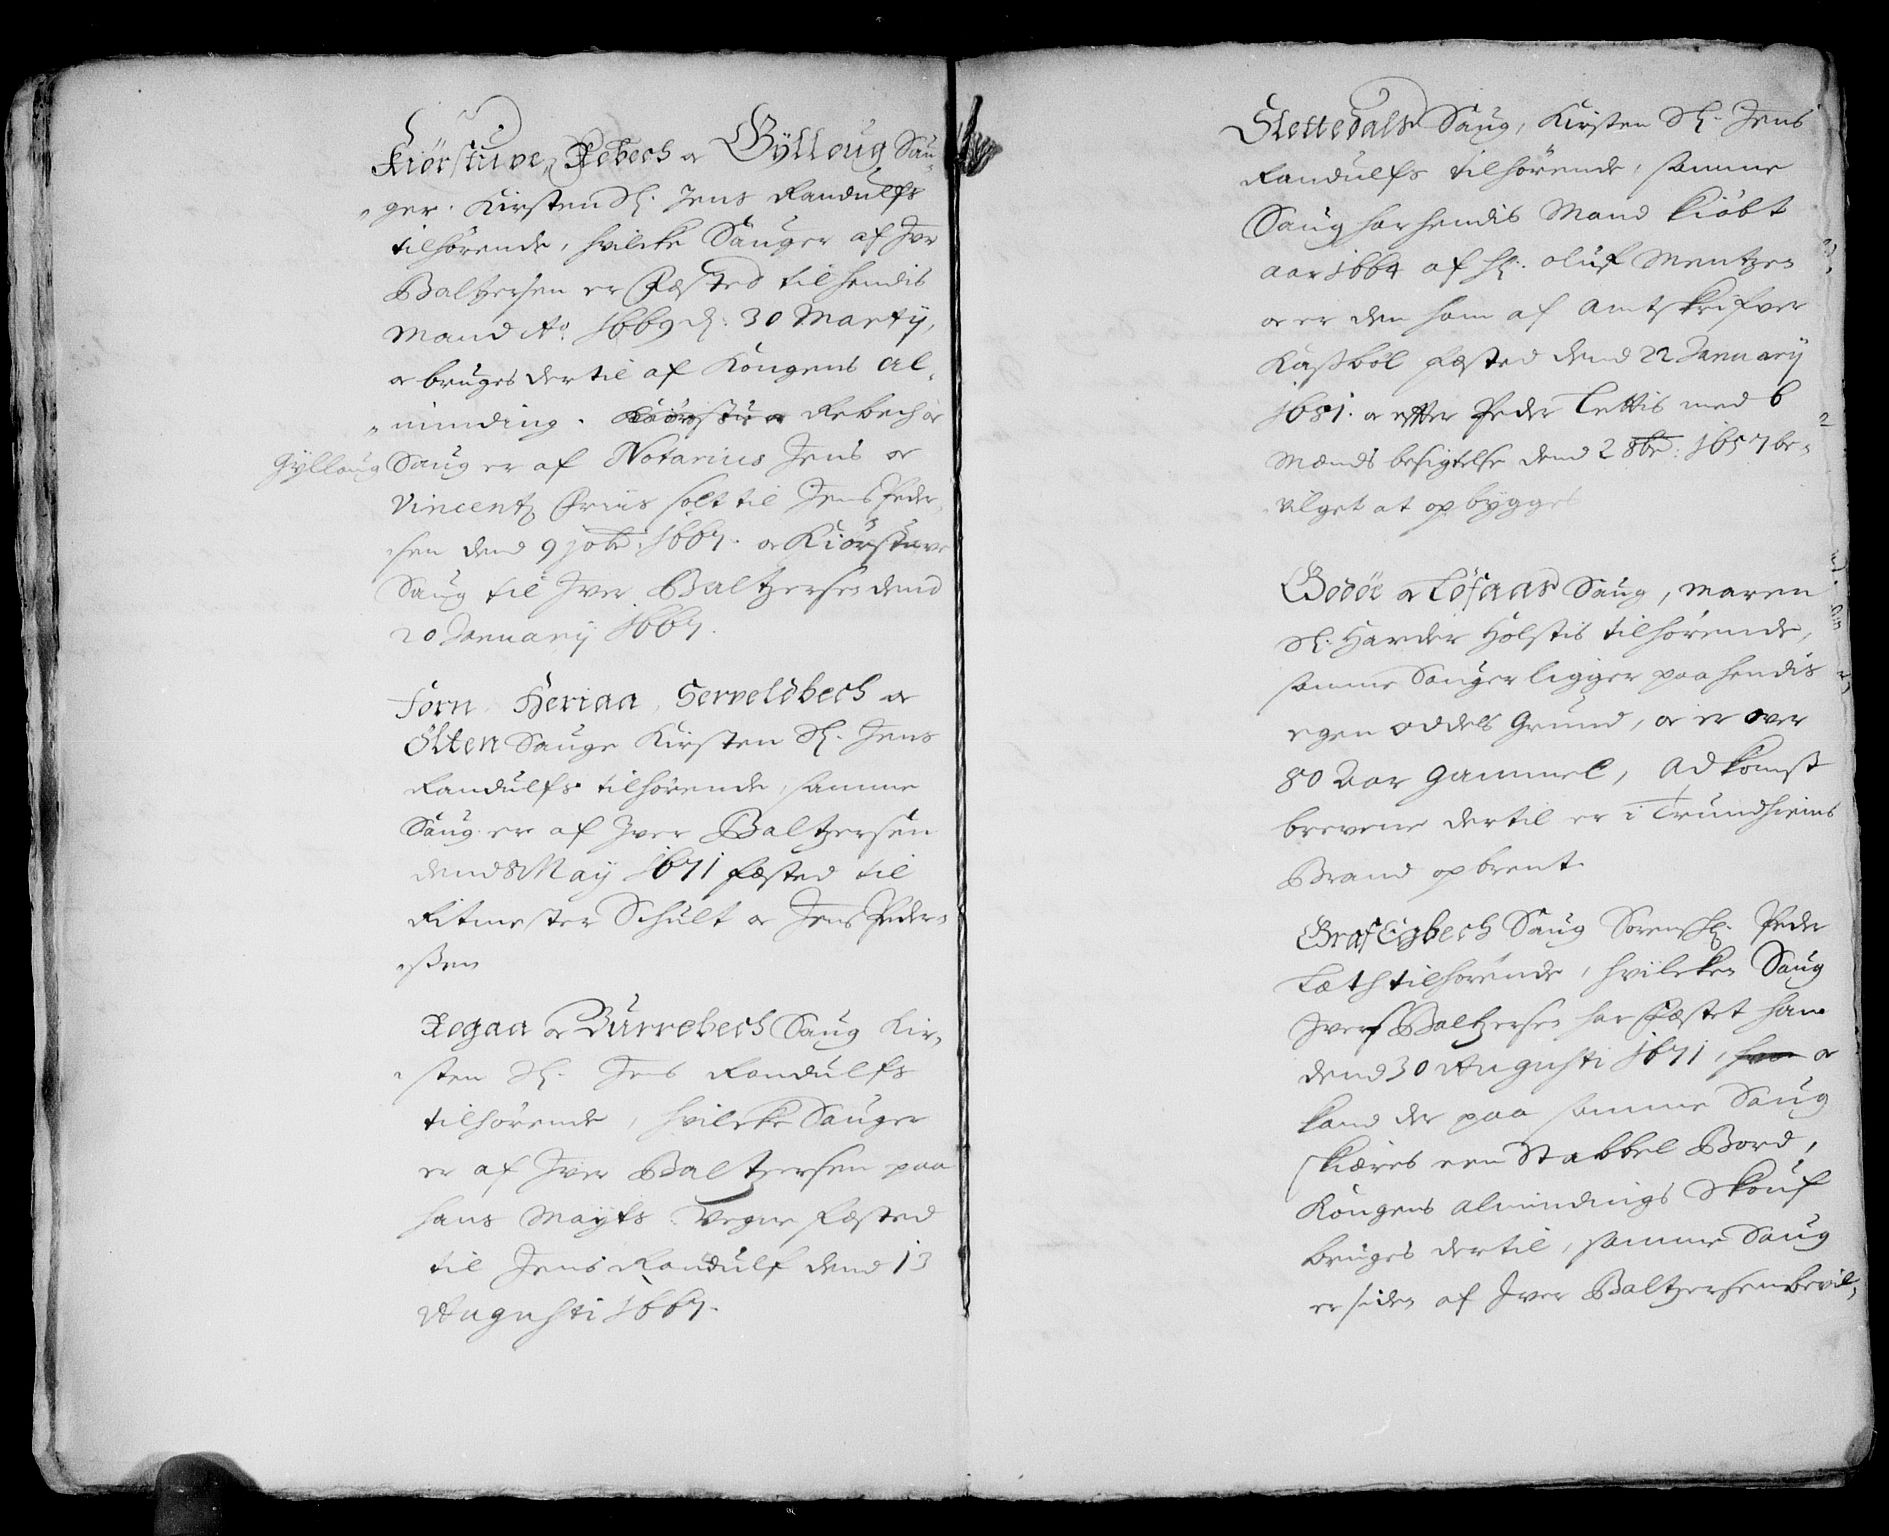 Kiörstuve, Rebech oc Gylloug Sau-
ger. Kirsten Sl. Jens Randulfs
tilhörende, hvilcke Sauger af Iver
Baltzersen er Fæsted til hendis
Mand Ao. 1669 d. 30 Marty,
oc bruges dertil af Kongens Al-
minding. Rebech oc
Gylloug Saug er af Notarius Jens oc
Vincentz solt til Jens Peder-
sen dend 9 1667. oc Kiörstuve
Saug til Iver Baltzersen dend
20 January 1667.
Forn, Heriaa, Serveldbech oc
Ölten Sauge Kirsten Sl. Jens
Randulfs tilhörende, samme
Saug er af Iver Baltzersen
dend 8 May 1671 fæsted til
Ritmester Schult oc Jens Peder-
ssen
Rogaa oc Burrebech Saug Kir-
sten Sl. Jens Randulfs
tilhörende, hvilcke Sauger
er af Iver Baltzersen paa
hans Mayts. Vegne fæsted
til Jens Randulf dend 13
Augusti 1667.
Slettedals Saug, Kirsten Sl. Jens
Randulfs tilhörende, samme
Saug har hendis Mand kiöbt
aar 1664 af Sl. Oluf Mentzen
oc er den ham af Amtskrifver
Kassbol fæsted dend 22 January
1651. oc efter Peder Tettis med 6
Mænds besigtelse dend 2 8be: 1657 be-
vilget at opbygges
Godöe oc Töfaas Saug, Maren
Sl. Harder Holstis tilhörende,
samme Sauger ligger paa hendis
egen Oddels Grund, oc er over
80 Aar gammel, Adkomst
brevene dertil er i Trundhiems
Brand opbrent.
Saug Peder
Tæth tilhörende, hvilcken Saug
Iver Baltzersen har fæstet ham
dend 30 Augusti 1671, oc
kand der paa samme Saug
skiæres een Stabbel Bord,
Kongens Almindings Skouf
bruges dertil, samme Saug
er siden af Iver Baltzersen bevil-